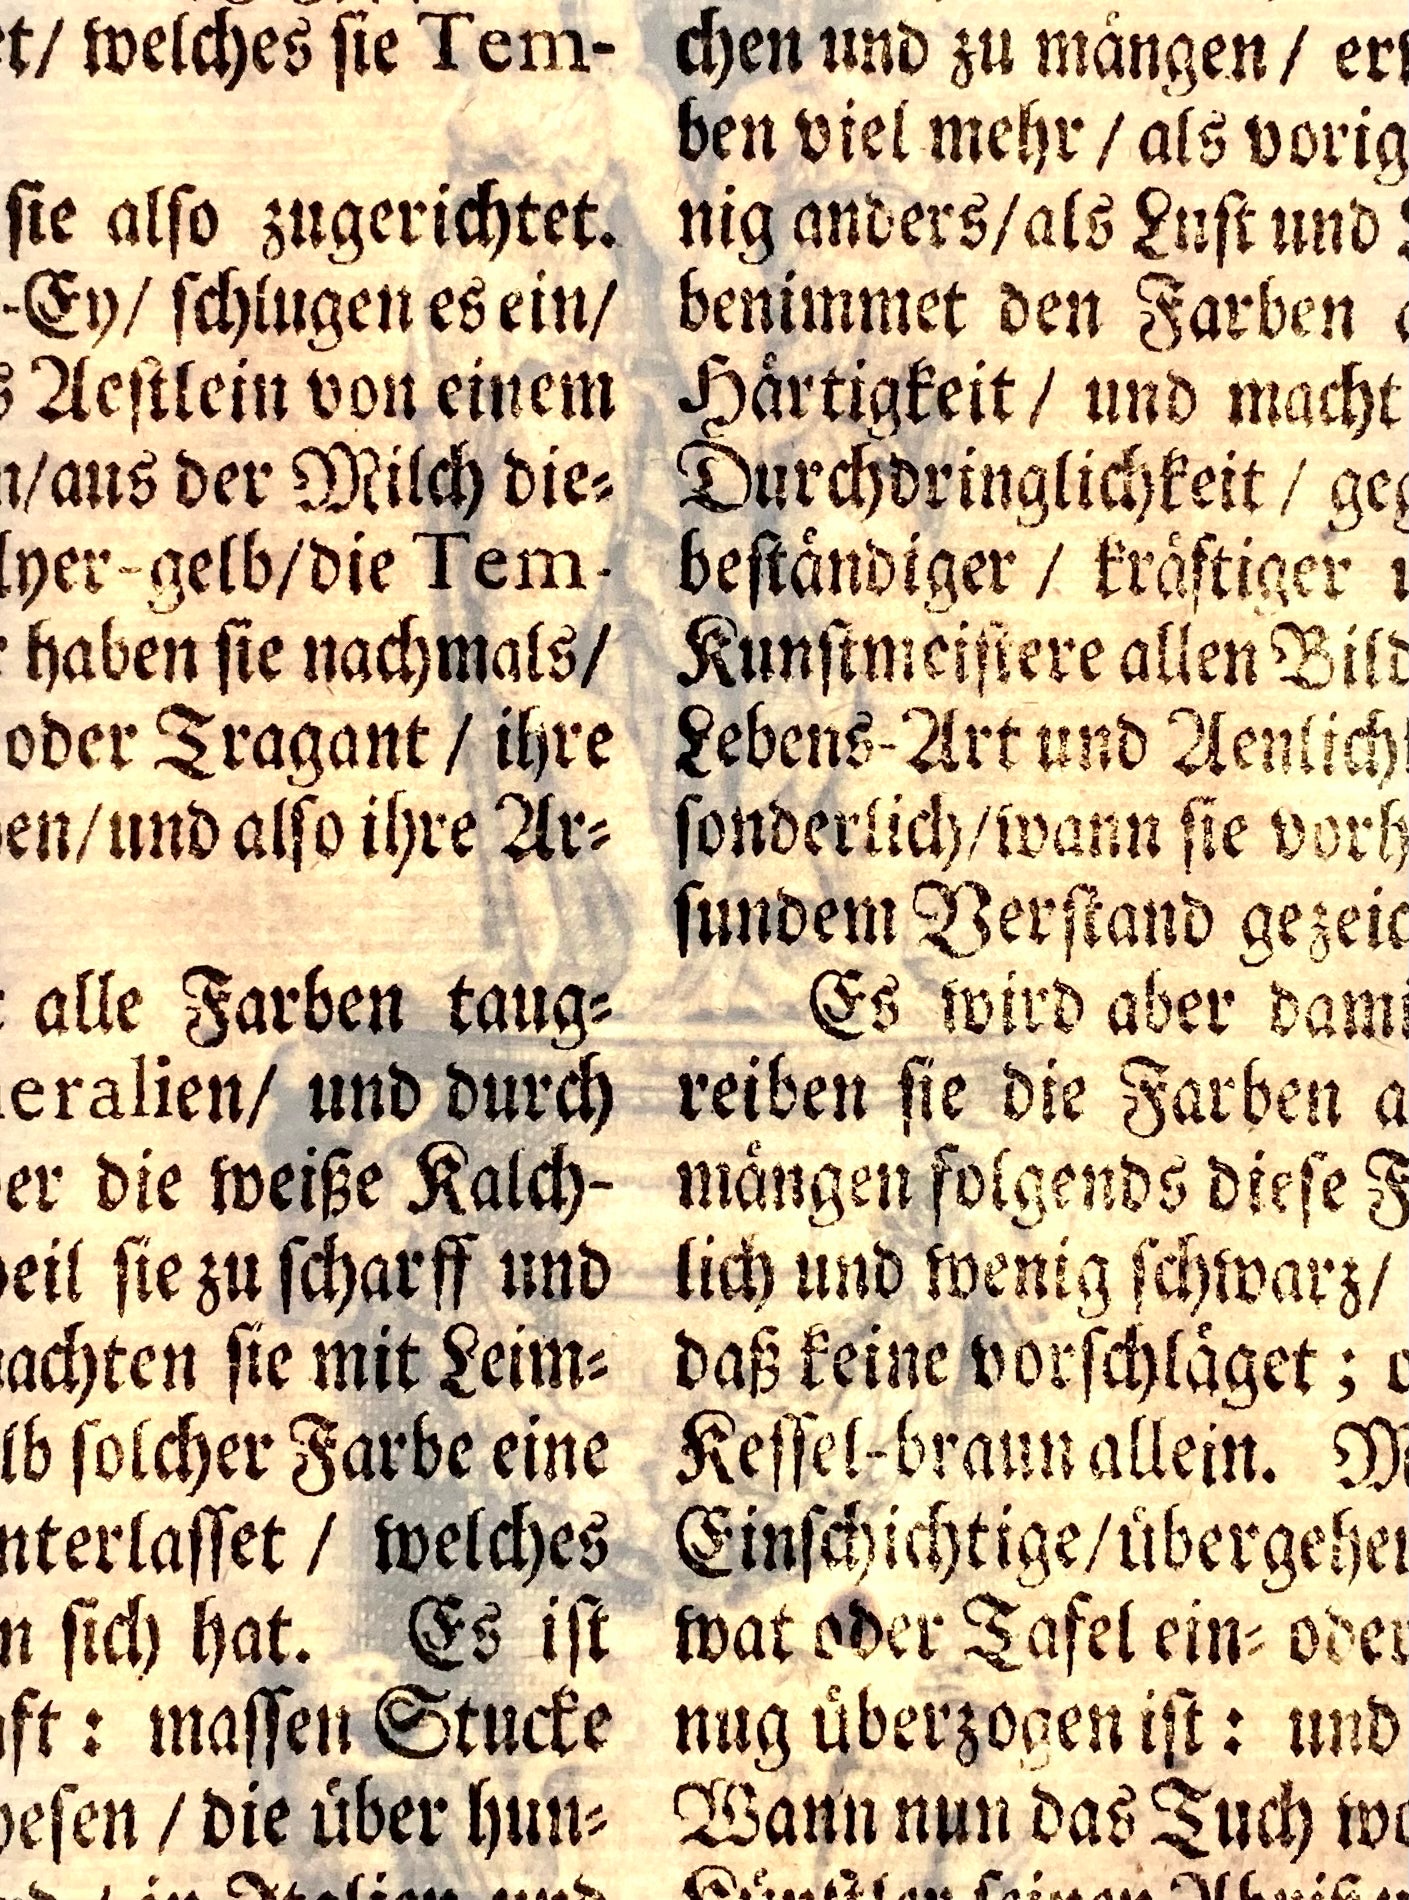 welches sie Tem-
sie also zugerichtet.
-Ey/ schlugen es ein/
Aestlein von einem
/aus der Milch die-
lyer-gelb/die Tem-
haben sie nachmals/
oder Tragant / ihre
/und also ihre Ar-
alle Farben taug-
neralien/ und durch
die weiße Kalch-
sie zu scharff und
sie mit Leim-
solcher Farbe eine
nterlasset / welches
sich hat. Es ist
: massen Stucke
/ die über hun-
in Italien und
chen und zu mängen /
ben viel mehr / als vorig
nig anders/als Lust und
benimmet den Farben
Härtigkeit / und macht
Durchdringlichkeit / geg
beständiger / kräftiger
Kunstmeistere allen Bild
Lebens-Art und Aenlich
sonderlich/wann sie vorh
sundem Verstand gezeic
Es wird aber dami
reiben sie die Farben a
mängen folgends diese F
lich und wenig schwarz/
daß keine vorschläget ;
Kessel-braun allein. M
Einschichtige/übergehen
wat oder Tafel ein- oder
nug überzogen ist : und
Wann nun das Tuch wo
Künstler seinen